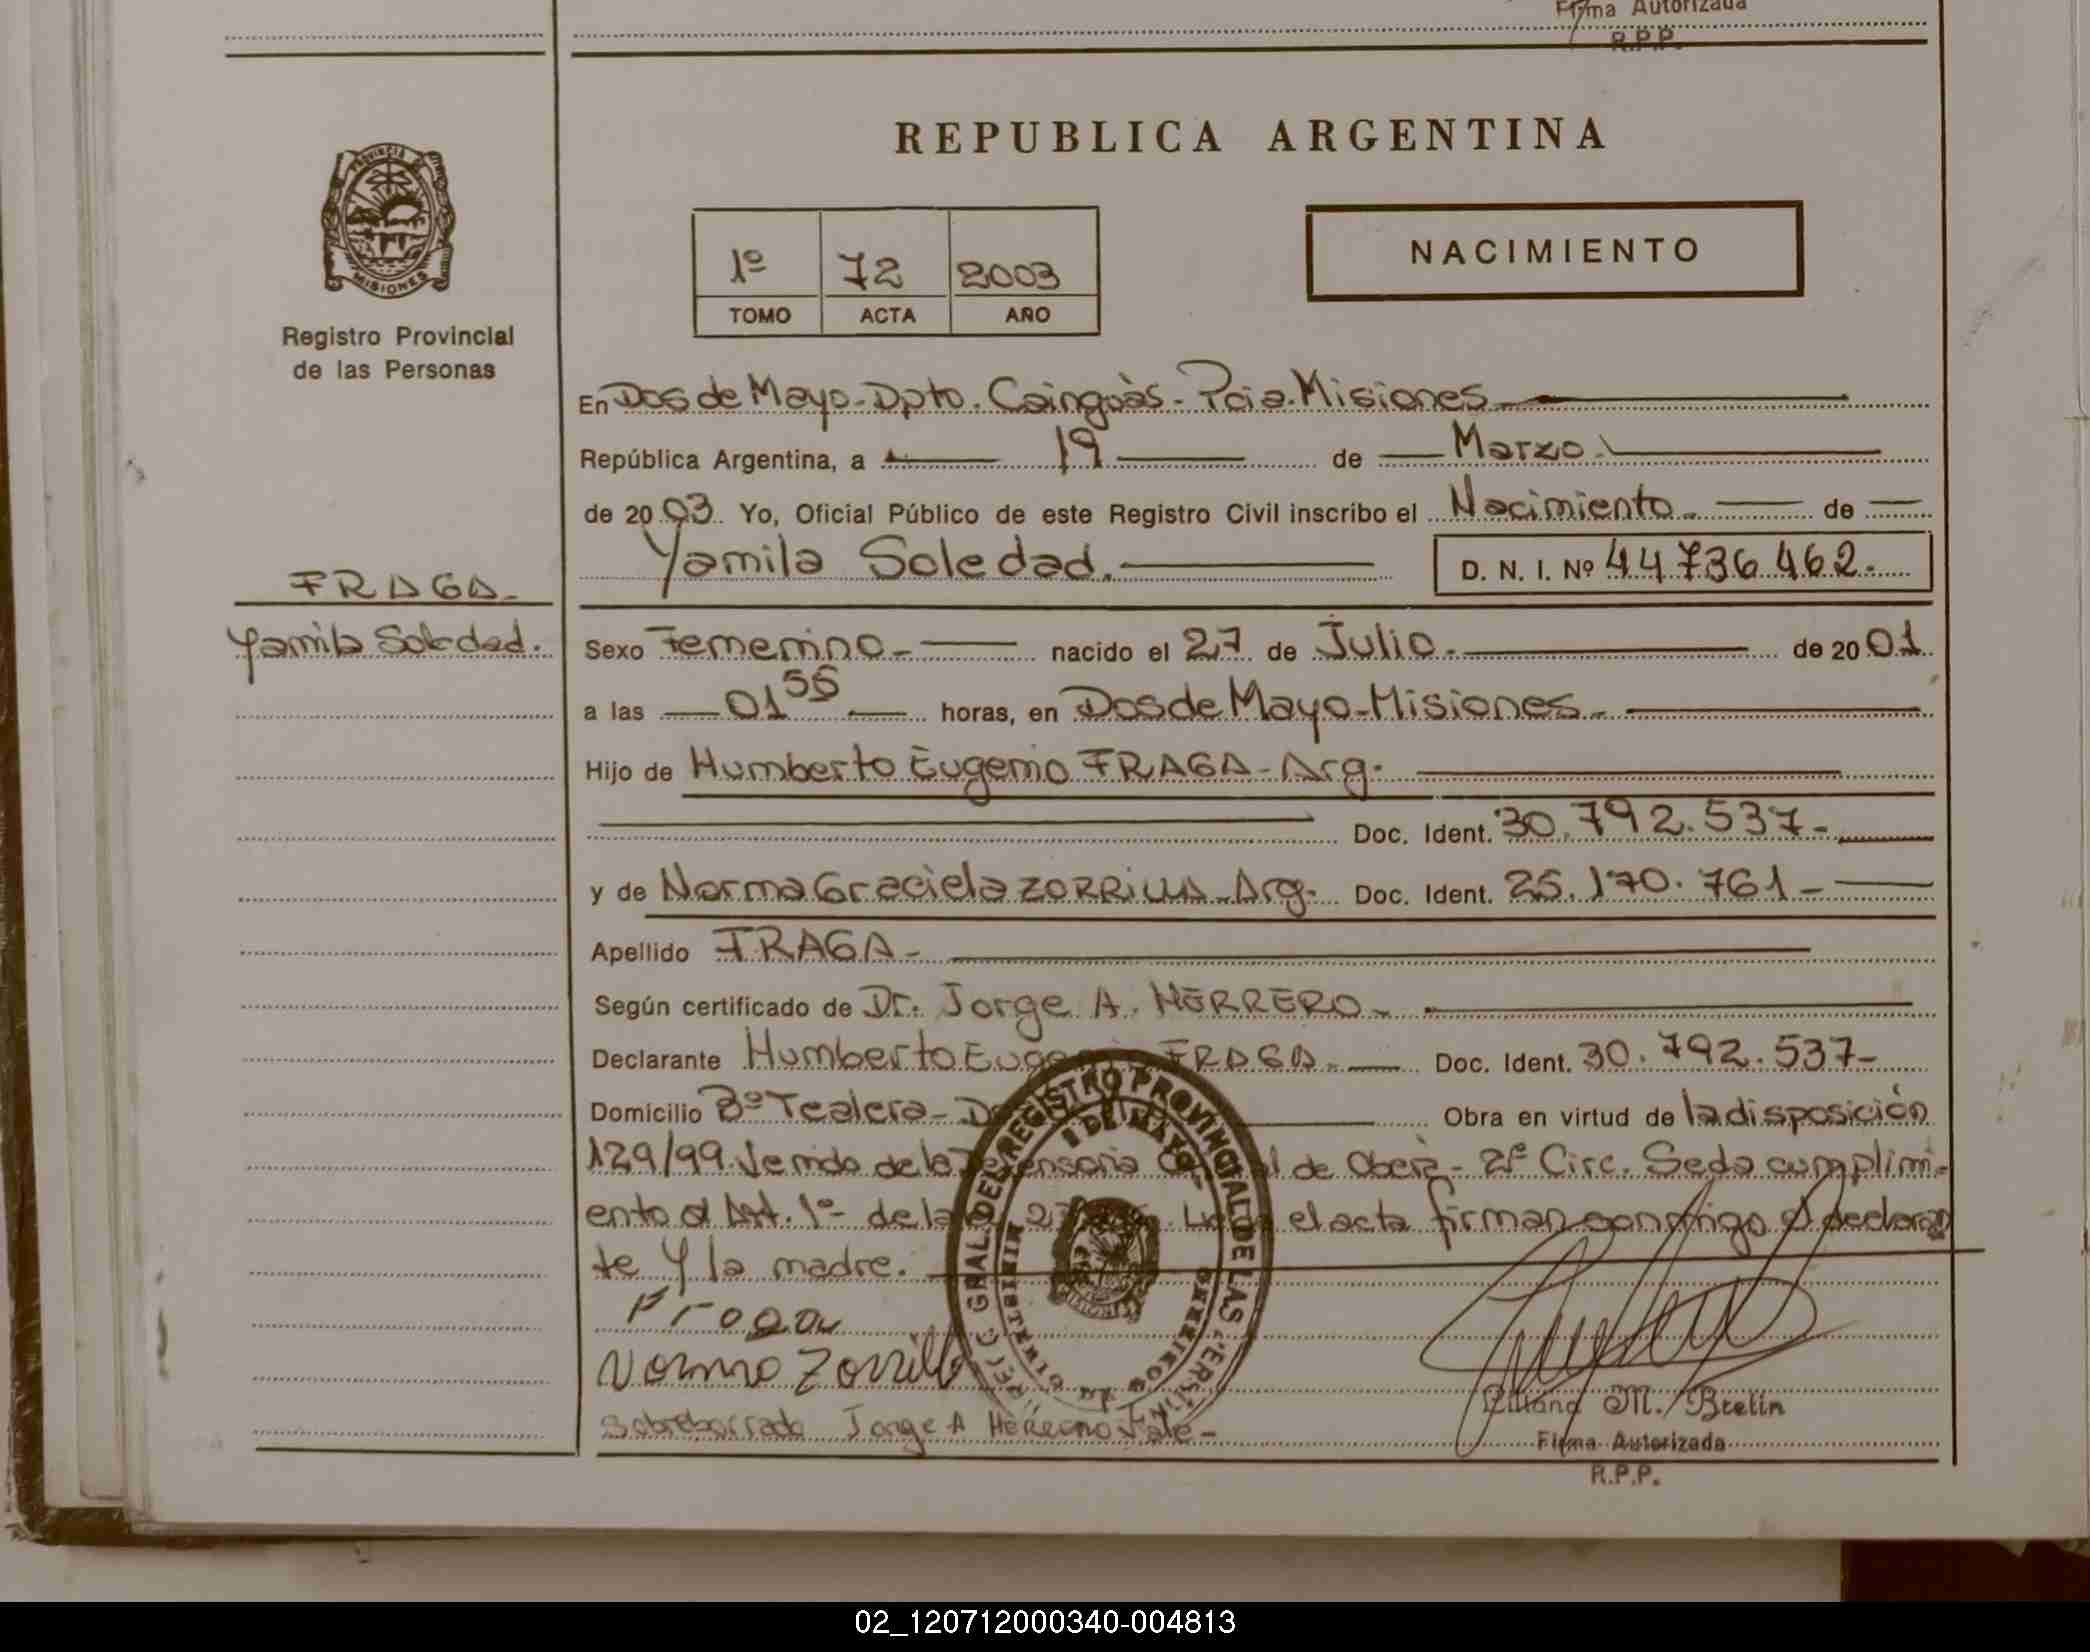 Firma Autorizada
R.P.P.
REPUBLICA ARGENTINA
PROVINCIA DE
MISIONES
Registro Provincial
de las Personas
1º 72 2003
TOMO ACTA AÑO
NACIMIENTO
En Dos de Mayo - Dpto. Cainguàs - Pcia. Misiones
República Argentina, a 19 de Marzo.
de 2003. Yo, Oficial Público de este Registro Civil inscribo el Nacimiento de
Yamila Soledad. D. N. I. Nº 44736462.
FRAGA
Yamila Soledad.
Sexo Femenino nacido el 27 de Julio. de 2001
a las 01 55 horas, en Dos de Mayo - Misiones
Hijo de Humberto Eugenio FRAGA - Arg.
Doc. Ident. 30.792.537-
y de Norma Graciela ZORRILLA - Arg. Doc. Ident. 25.170.761-
Apellido FRAGA-
Según certificado de Dr. Jorge A. HERRERO
Declarante Humberto FRAGA Doc. Ident. 30.792.537-
Domicilio Bº Tealera - Obra en virtud de la disposición
129/99. Venido de la Defensoria de Oberà - 2º Circ. Se da cumplimi-
ento al Art. 1º de la el acta firman conmigo el declaran
te y la madre.
Fraga
Norma Zorrilla
Sobreborrado Jorge A Herrero Vale-
REGISTRO PROVINCIAL DE LAS
2 DE MAYO
Liliana M. Brelin
Firma Autorizada
R.P.P.
02_120712000340-004813